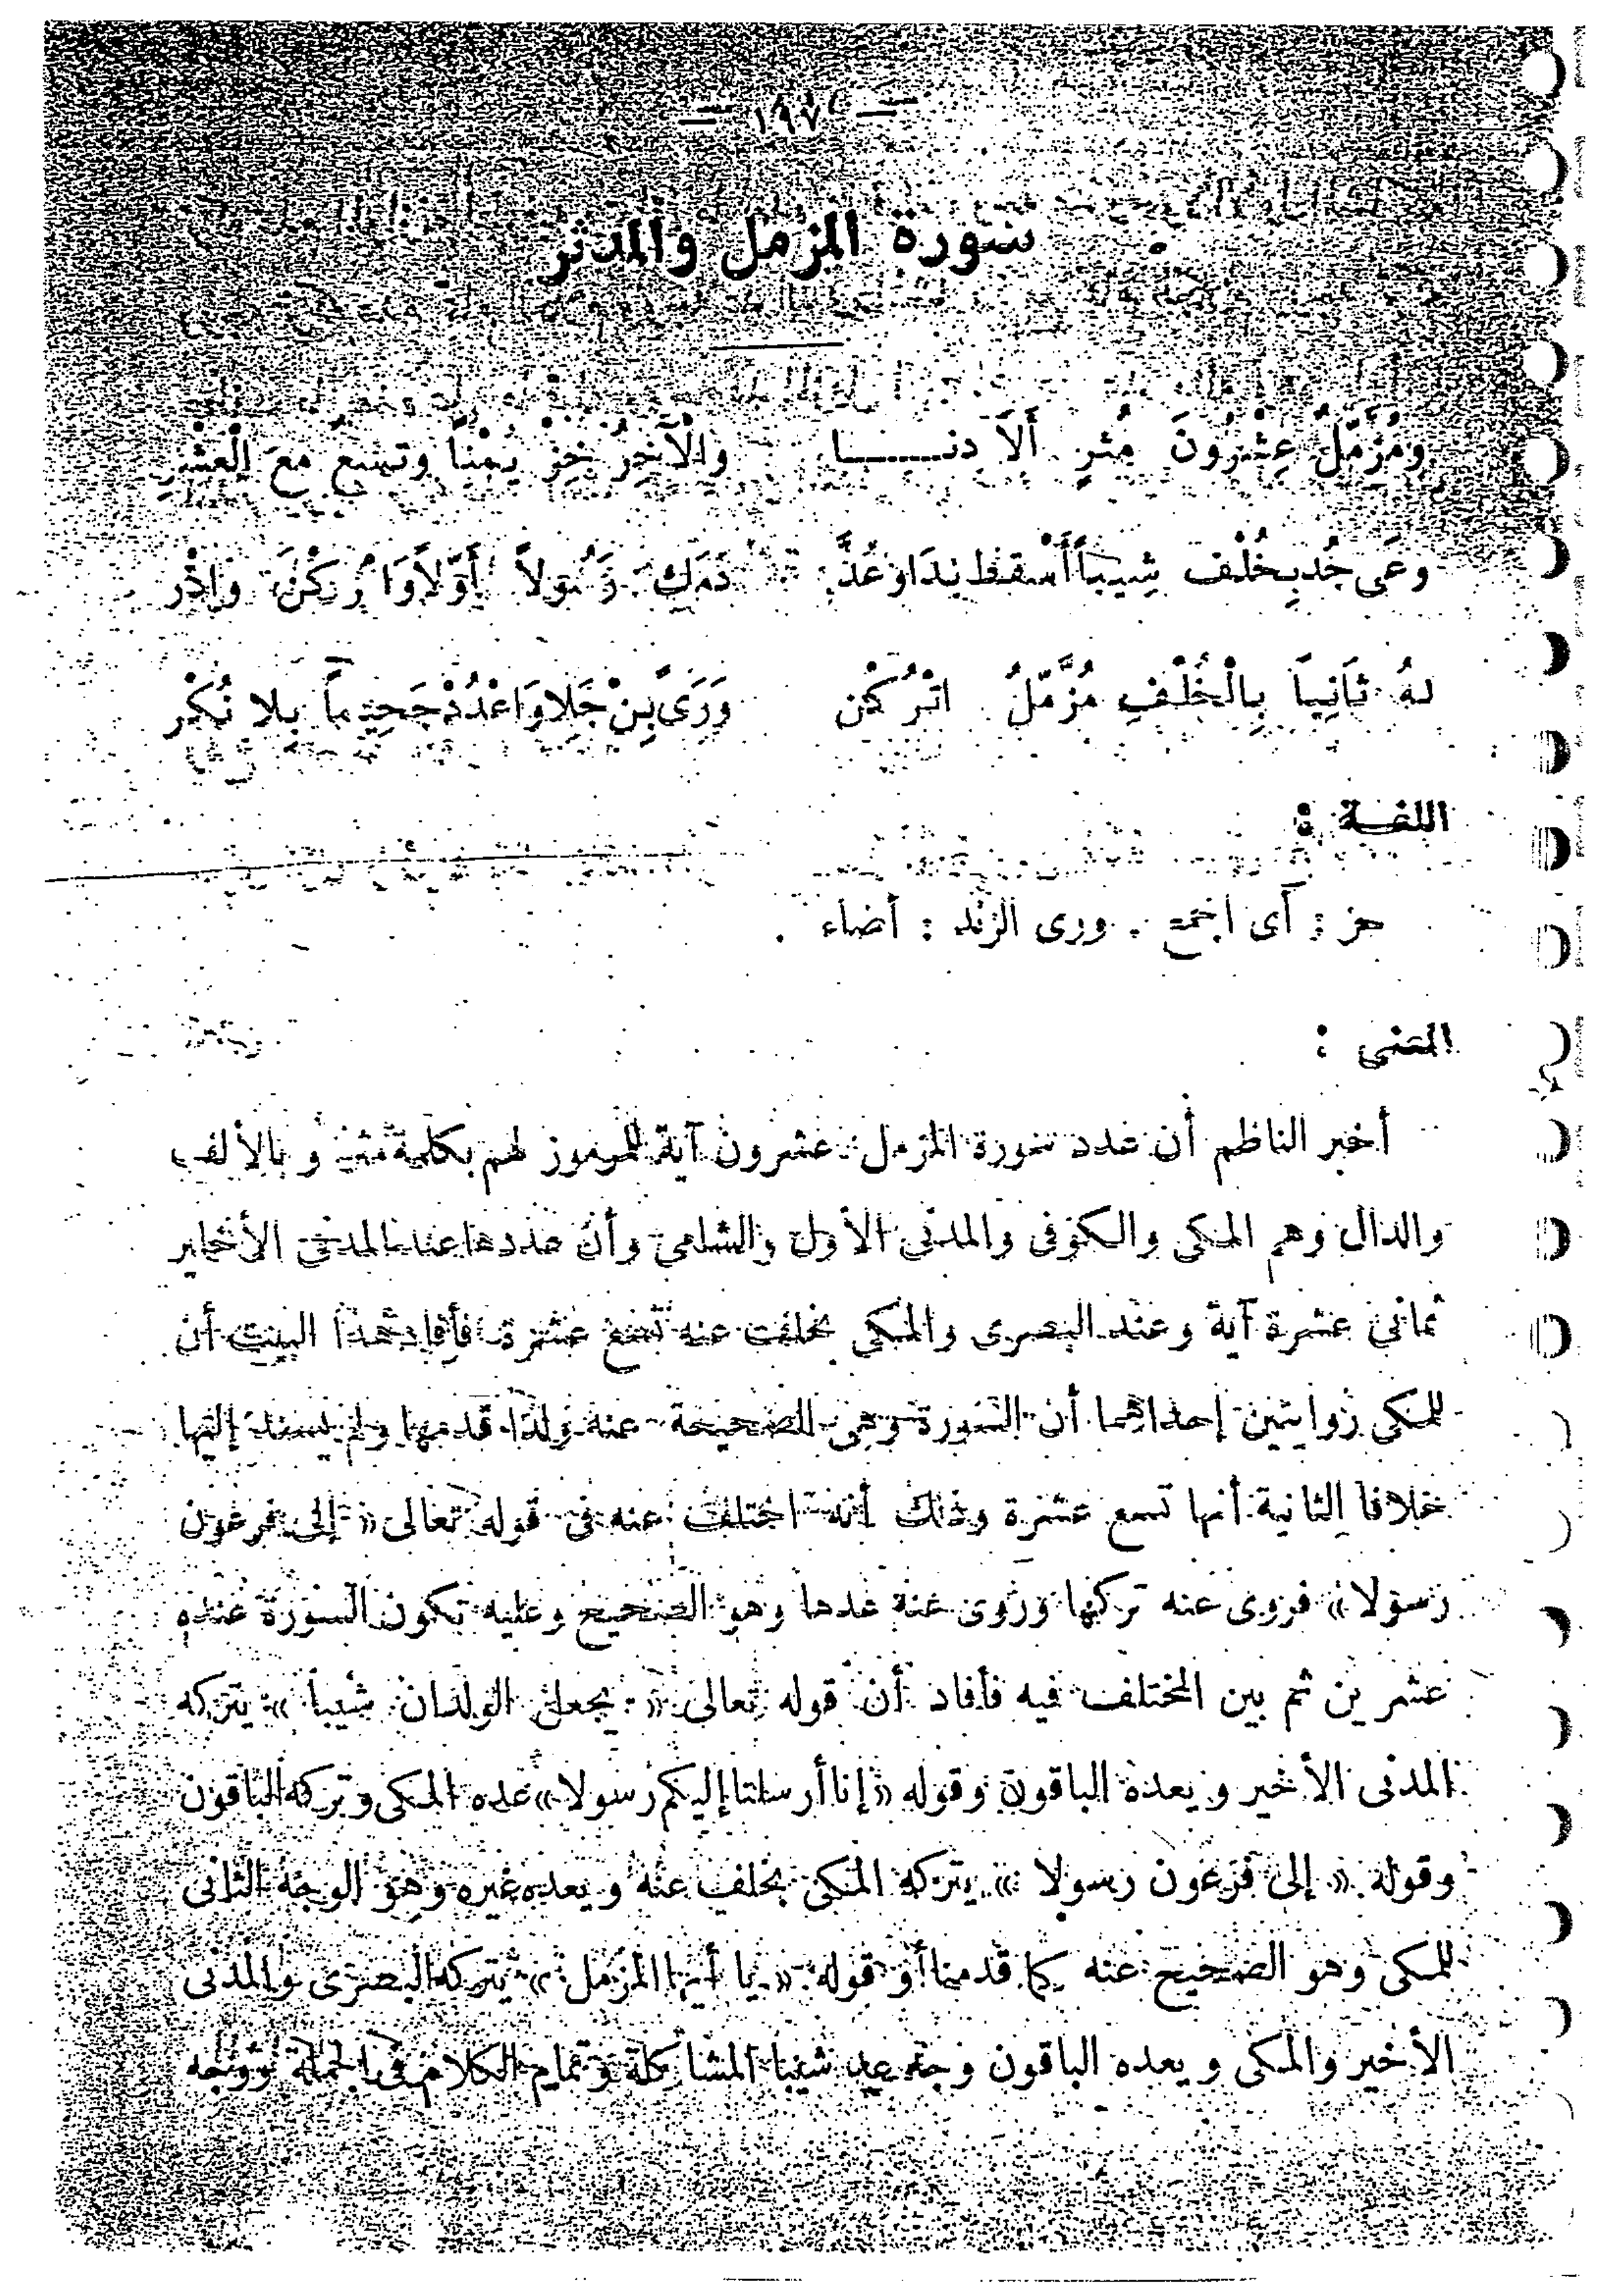 — ١٩٧ —
سورة المزمل والمدثر
ومُزَّمِّلٌ عِشْرُونَ مُثرٍ أَلاَ دنـــــا والْآخِرُ حُزْ يُمْنًا وتسعٌ مَعَ الْعَشْرِ
وعَى جُد بِخُلْف شِيباً أَسْقط بَدَا وَعُدَّ رَسُولاً أَوّلاً وَاتْرُكَنْ وادْر
لهُ ثَانِياً بِالْخُلْفِ مُزَّمّلُ اتْرُكن وَرَىً بِنْ جَلا وَاعْدُدْ جَحِيماً بلا نُكْر
اللغة :
حز : أى اجمع . ورى الزند : أضاء .
المعنى :
أخبر الناظم أن عدد سورة المزمل عشرون آية للمرموز لهم بكلمة مثر و بالألف
والدال وهم المكى والكوفى والمدنى الأول والشامى وأن عددها عند المدنى الأخير
ثمانى عشرة آية وعند البصرى والمكى بخلف عنه تسع عشرة فأفاد هذا البيت أن
للمكى روايتين إحداهما أن السورة وهى الصحيحة عنه ولذا قدمها ولم يسند إليها
خلافا الثانية أنها تسع عشرة وذلك أنه اختلف عنه فى قوله تعالى « إلى فرعون
رسولا » فروى عنه تركها وروى عنه عدها وهو الصحيح وعليه تكون السورة عنده
عشرين ثم بين المختلف فيه فأفاد أن قوله تعالى « يجعل الولدان شيبا » يتركه
المدنى الأخير و يعده الباقون وقوله « إنا أرسلنا إليكم رسولا » عده المكى وتركه الباقون
وقوله « إلى فرعون رسولا » يتركه المكى بخلف عنه و يعده غيره وهو الوجه الثانى
للمكى وهو الصحيح عنه كما قدمنا أو قوله « يا أيها المزمل » يتركه البصرى والمدنى
الأخير والمكى و يعده الباقون وجه عد شيبا المشاكلة وتمام الكلام فى الجملة ووجه